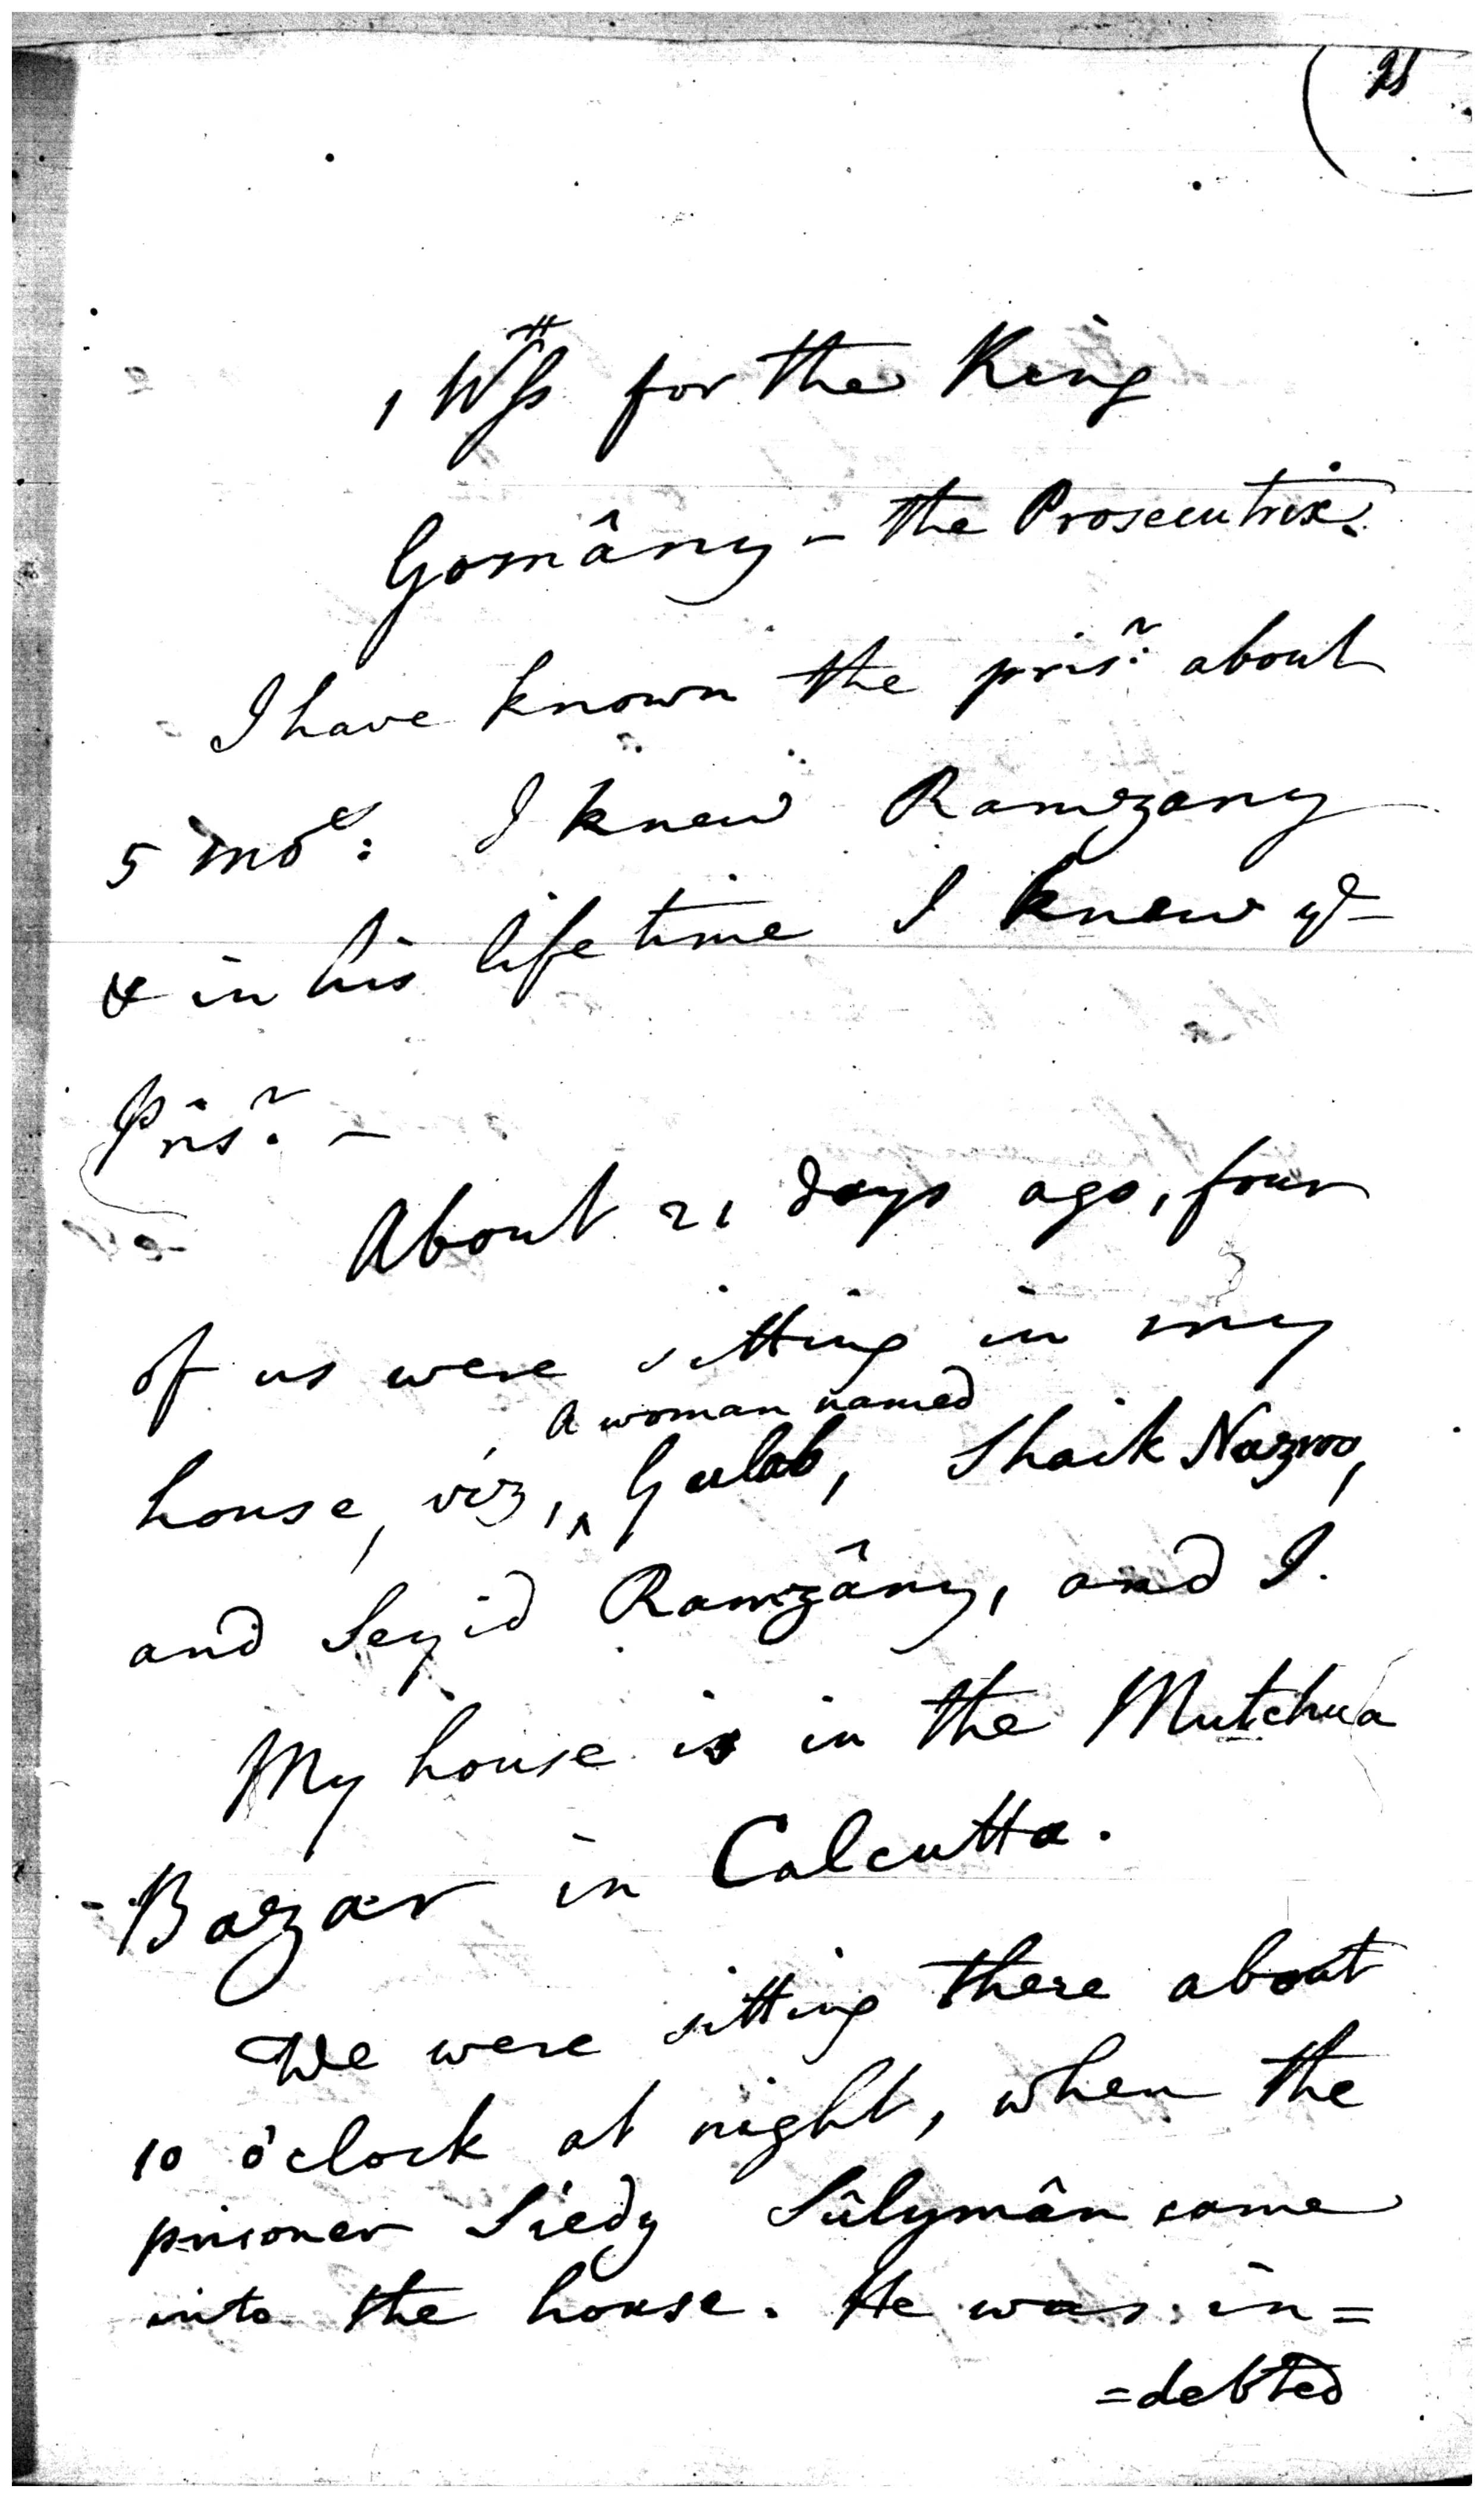 1 Wss for the King
Gomâny – the Prosecutrix.
I have known the prisr. about
5 mos: I knew Ramzany
& in his life time I knew ye
Prisr. –
About 21 days ago, four
of us were sitting in my
a woman named
house, viz, ^ Gulab, Shaik Nazroo,
and Seyid Ramzâny, and I.
My house is in the Mutchua
Bazar in Calcutta.
We were sitting there about
10 o'clock at night, when the
prisoner Siedy Sûlymân came
into the house. He was in=
=debted